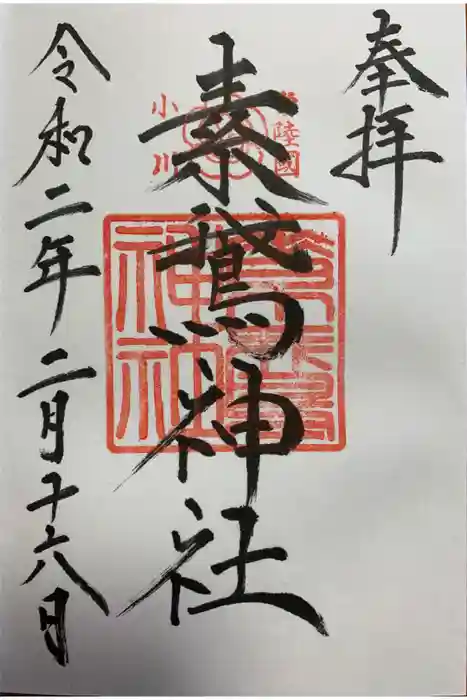 奉拝
常陸國
小川
素鵞神社
素鵞神社
令和二年二月十六日